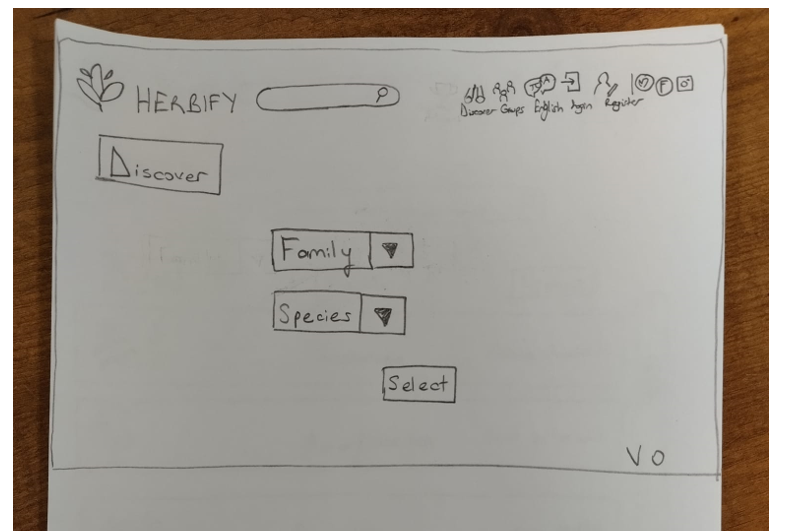 HERBIFY
Discover Groups English Login Register
Discover
Family
Species
Select
V0